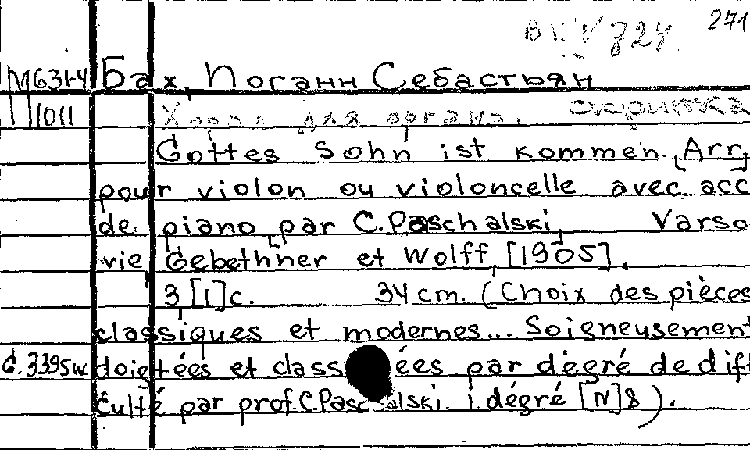 271
М6314 Бах, Иоганн Себастьян
1011 Хорал для органа. скрипка
Gottes Sohn ist kommen. [Arr.]
pour violon ou violoncelle avec acc
de piano par C. Paschalski, Varso
vie, Gebethner et Wolff, [1905].
3 [1] c. 34 cm. (Choix des pièces
classiques et modernes... Soigneusement
G.3395w doigtées et class ées par dégré de dif
culté par prof. C. Paschalski. I dégré [N] 8).